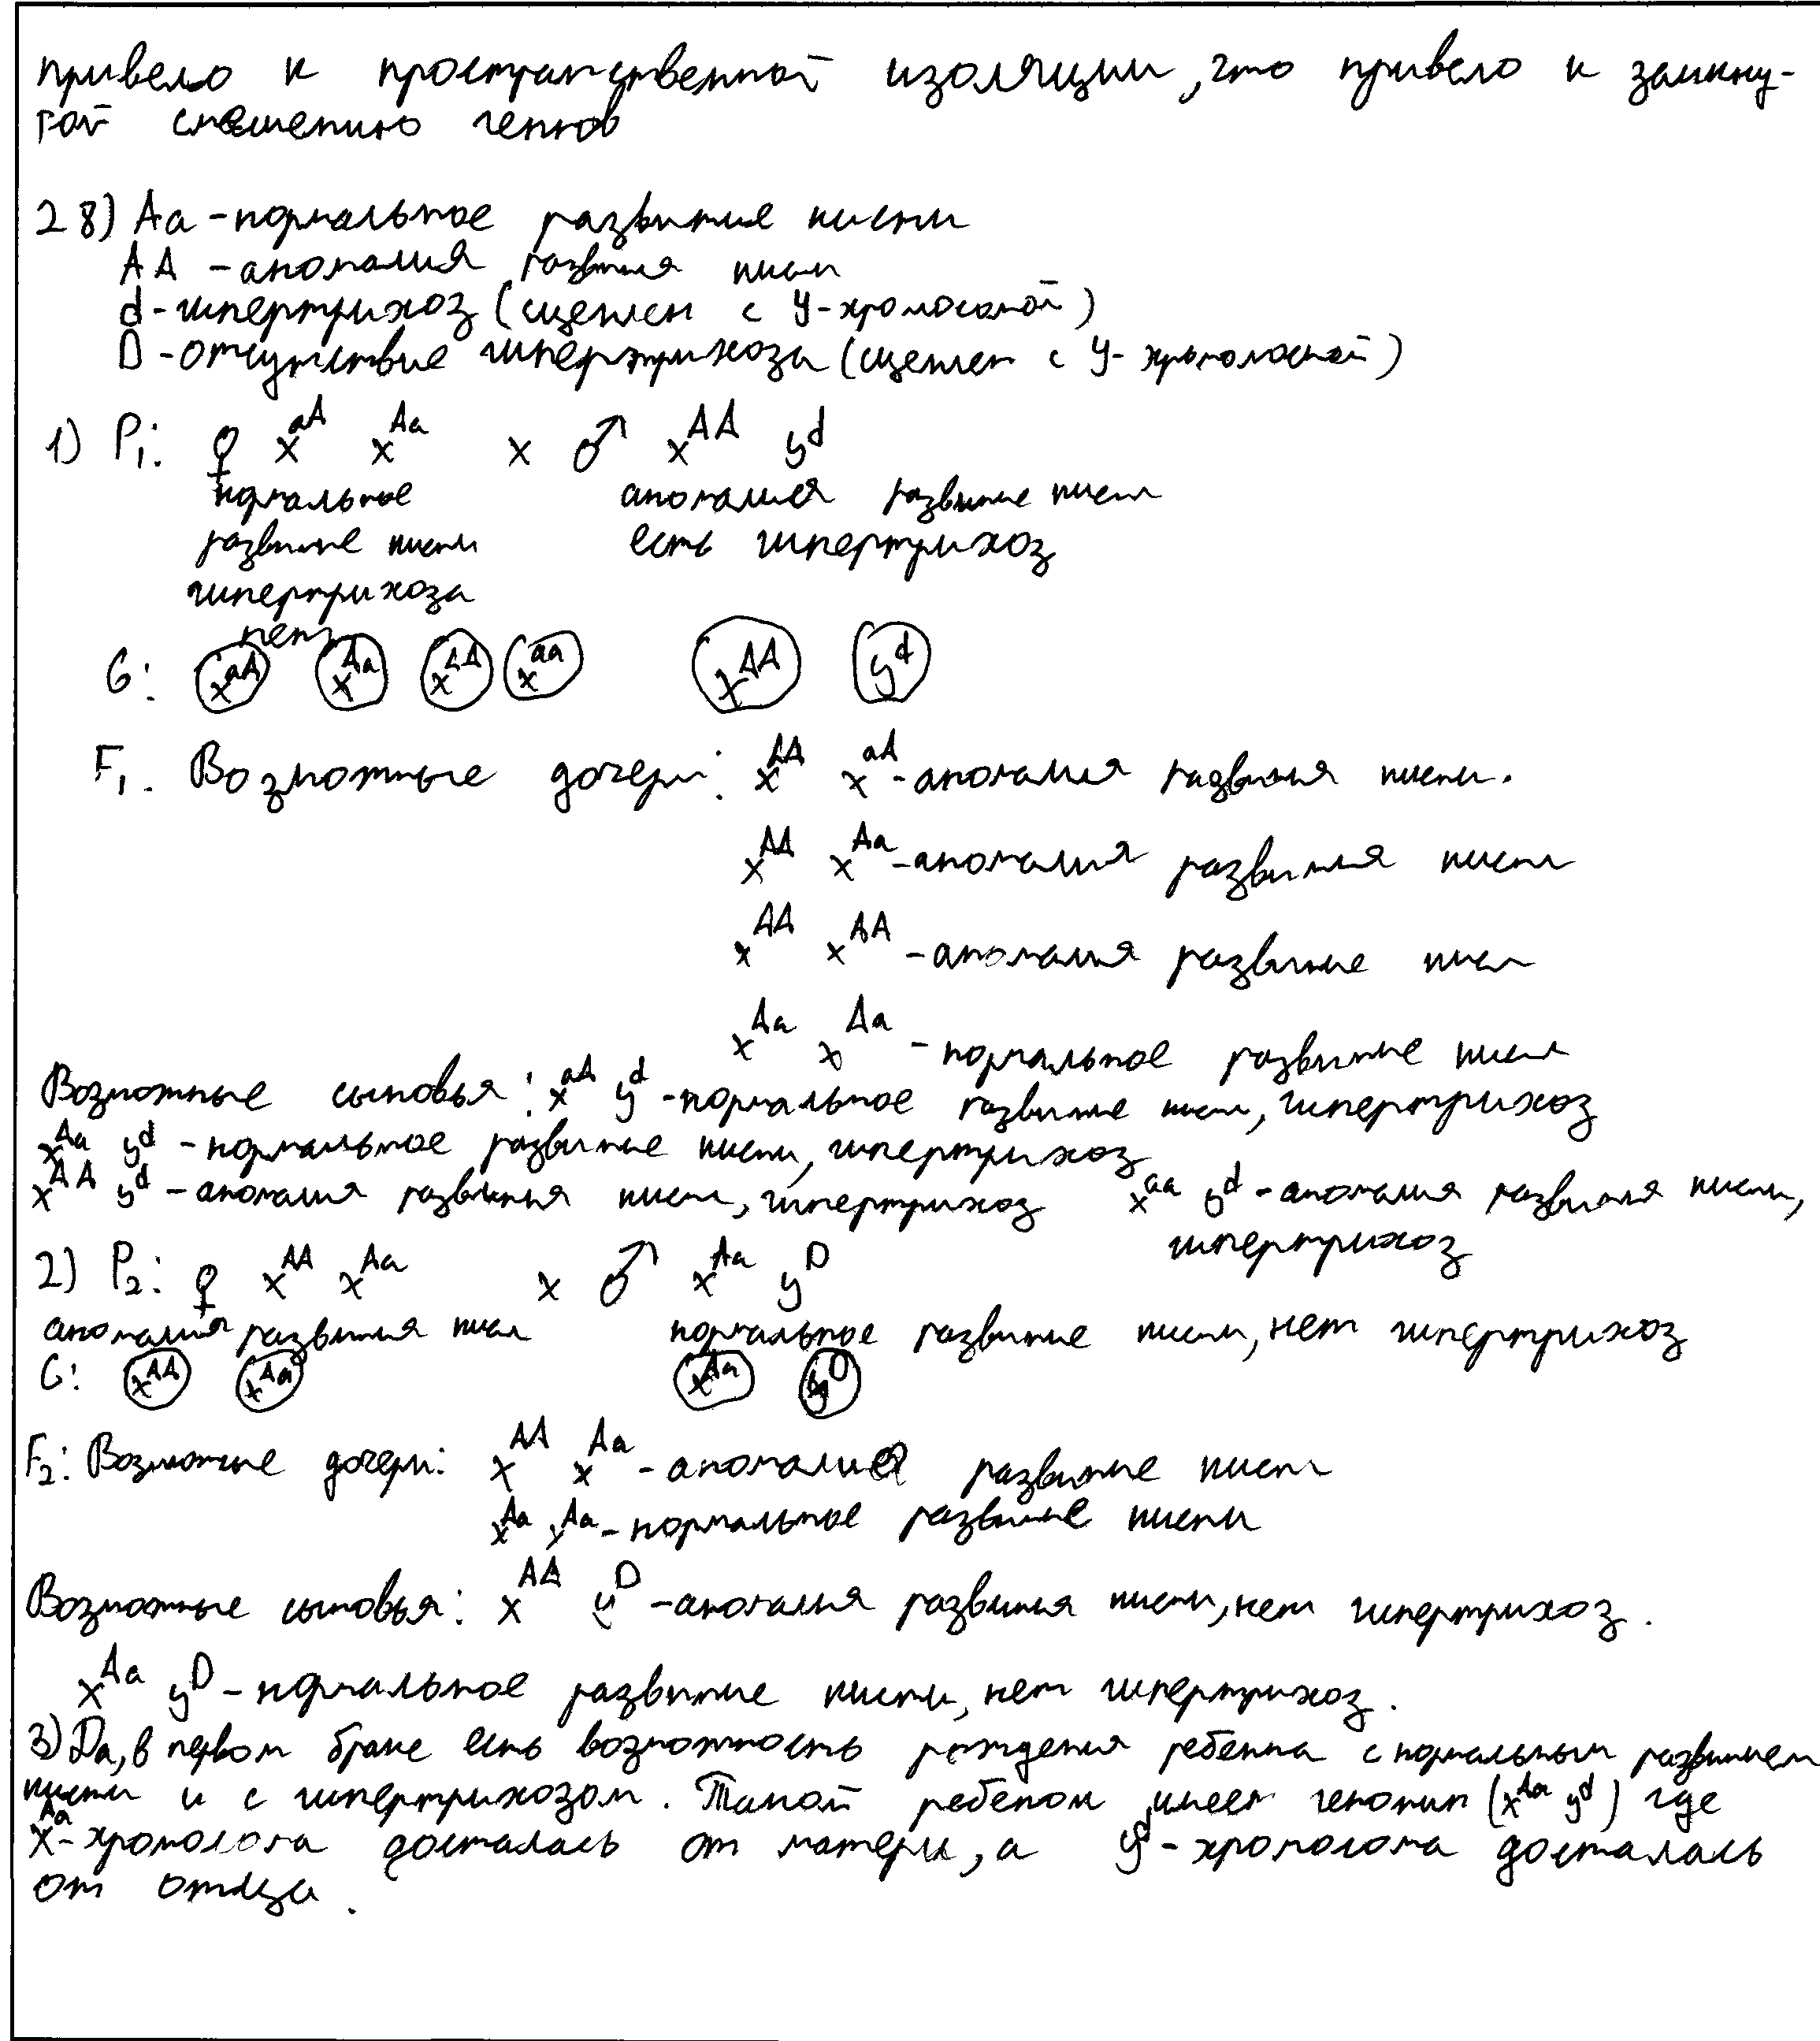 привело к пространственной изоляции, что привело к замкну-
той смешению генов
28) Aa - нормальное развитие кисти
AA - аномалия развития кисти
d - гипертрихоз (сцеплен с y-хромосомой)
D - отсутствие гипертрихоза (сцеплен с y-хромосомой)
1) P₁: ♀ x^aA x^Aa x ♂ x^AA y^d
нормальное аномалия развитие кисти
развитие кисти есть гипертрихоз
гипертрихоза
нет
G: x^aA x^Aa x^AA x^aa x^AA y^d
F₁. Возможные дочери: x^AA x^aA - аномалия развития кисти.
x^AA x^Aa - аномалия развития кисти
x^AA x^AA - аномалия развитие кисти
x^Aa x^Aa - нормальное развитие кисти
Возможные сыновья: x^aA y^d - нормальное развитие кисти, гипертрихоз
x^Aa y^d - нормальное развитие кисти, гипертрихоз
x^AA y^d - аномалия развития кисти, гипертрихоз x^aa y^d - аномалия развития кисти,
гипертрихоз
2) P₂: ♀ x^AA x^Aa x ♂ x^Aa y^D
аномалия развития кисти нормальное развитие кисти, нет гипертрихоз
G: x^AA x^Aa x^Aa y^D
F₂: Возможные дочери: x^AA x^Aa - аномалия развитие кисти
x^Aa x^Aa - нормальное развитие кисти
Возможные сыновья: x^AA y^D - аномалия развития кисти, нет гипертрихоз.
x^Aa y^D - нормальное развитие кисти, нет гипертрихоз.
3) Да, в первом браке есть возможность рождения ребёнка с нормальным развитием
кисти и с гипертрихозом. Такой ребёнок имеет генотип (x^Aa y^d) где
x^Aa - хромосома досталась от матери, а y^d - хромосома досталась
от отца.